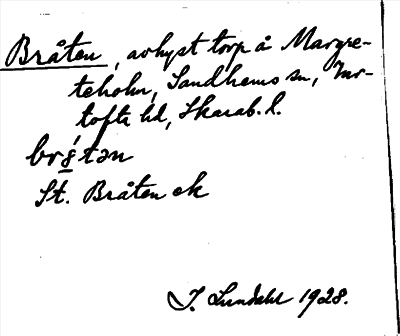 Bråten, avhyst torp å Margre-
teholm, Sandhems sn, Var-
tofta hd, Skarab. l.
br&́tən
St. Bråten ek
I. Lundahl 1928.